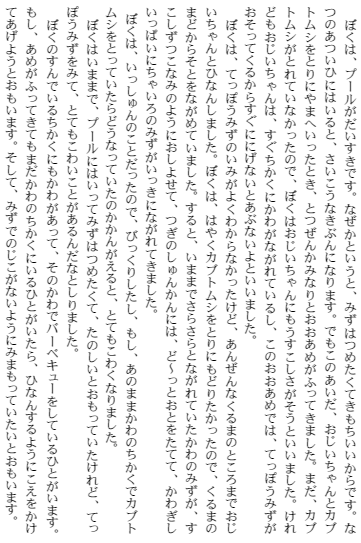 ぼくは、プールがだいすきです。なぜかというと、みずはつめたくてきもちいいからです。な
つのあついひにはいると、さいこうなきぶんになります。でもこのあいだ、おじいちゃんとカブ
トムシをとりにやまへいったとき、とつぜんかみなりとおおあめがふってきました。まだ、カブ
トムシがとれていなかったので、ぼくはおじいちゃんにもうすこしさがそうといいました。けれ
どもおじいちゃんは、すぐちかくにかわがながれているし、このおおあめでは、てっぽうみずが
おそってくるからすぐににげないとあぶないよといいました。
ぼくは、てっぽうみずのいみがよくわからなかったけど、あんぜんなくるまのところまでおじ
いちゃんとひなんしました。ぼくは、はやくカブトムシをとりにもどりたかったので、くるまの
まどからそとをながめていました。すると、いままでさらさらとながれていたかわのみずが、す
こしずつこなみのようにおしよせて、つぎのしゅんかんには、ど〜っとおとをたてて、かわぎし
いっぱいにちゃいろのみずがいっきにながれてきました。
ぼくは、いっしゅんのことだったので、びっくりしたし、もし、あのままかわのちかくでカブト
ムシをとっていたらどうなっていたのかかんがえると、とてもこわくなりました。
ぼくはいままで、プールにはいってみずはつめたくて、たのしいとおもっていたけれど、てっ
ぽうみずをみて、とてもこわいことがあるんだなとしりました。
ぼくのすんでいるちかくにもかわがあって、そのかわでバーベキューをしているひとがいます。
もし、あめがふってきてもまだかわのちかくにいるひとがいたら、ひなんするようにこえをかけ
てあげようとおもいます。そして、みずでのじこがないようにみまもっていたいとおもいます。